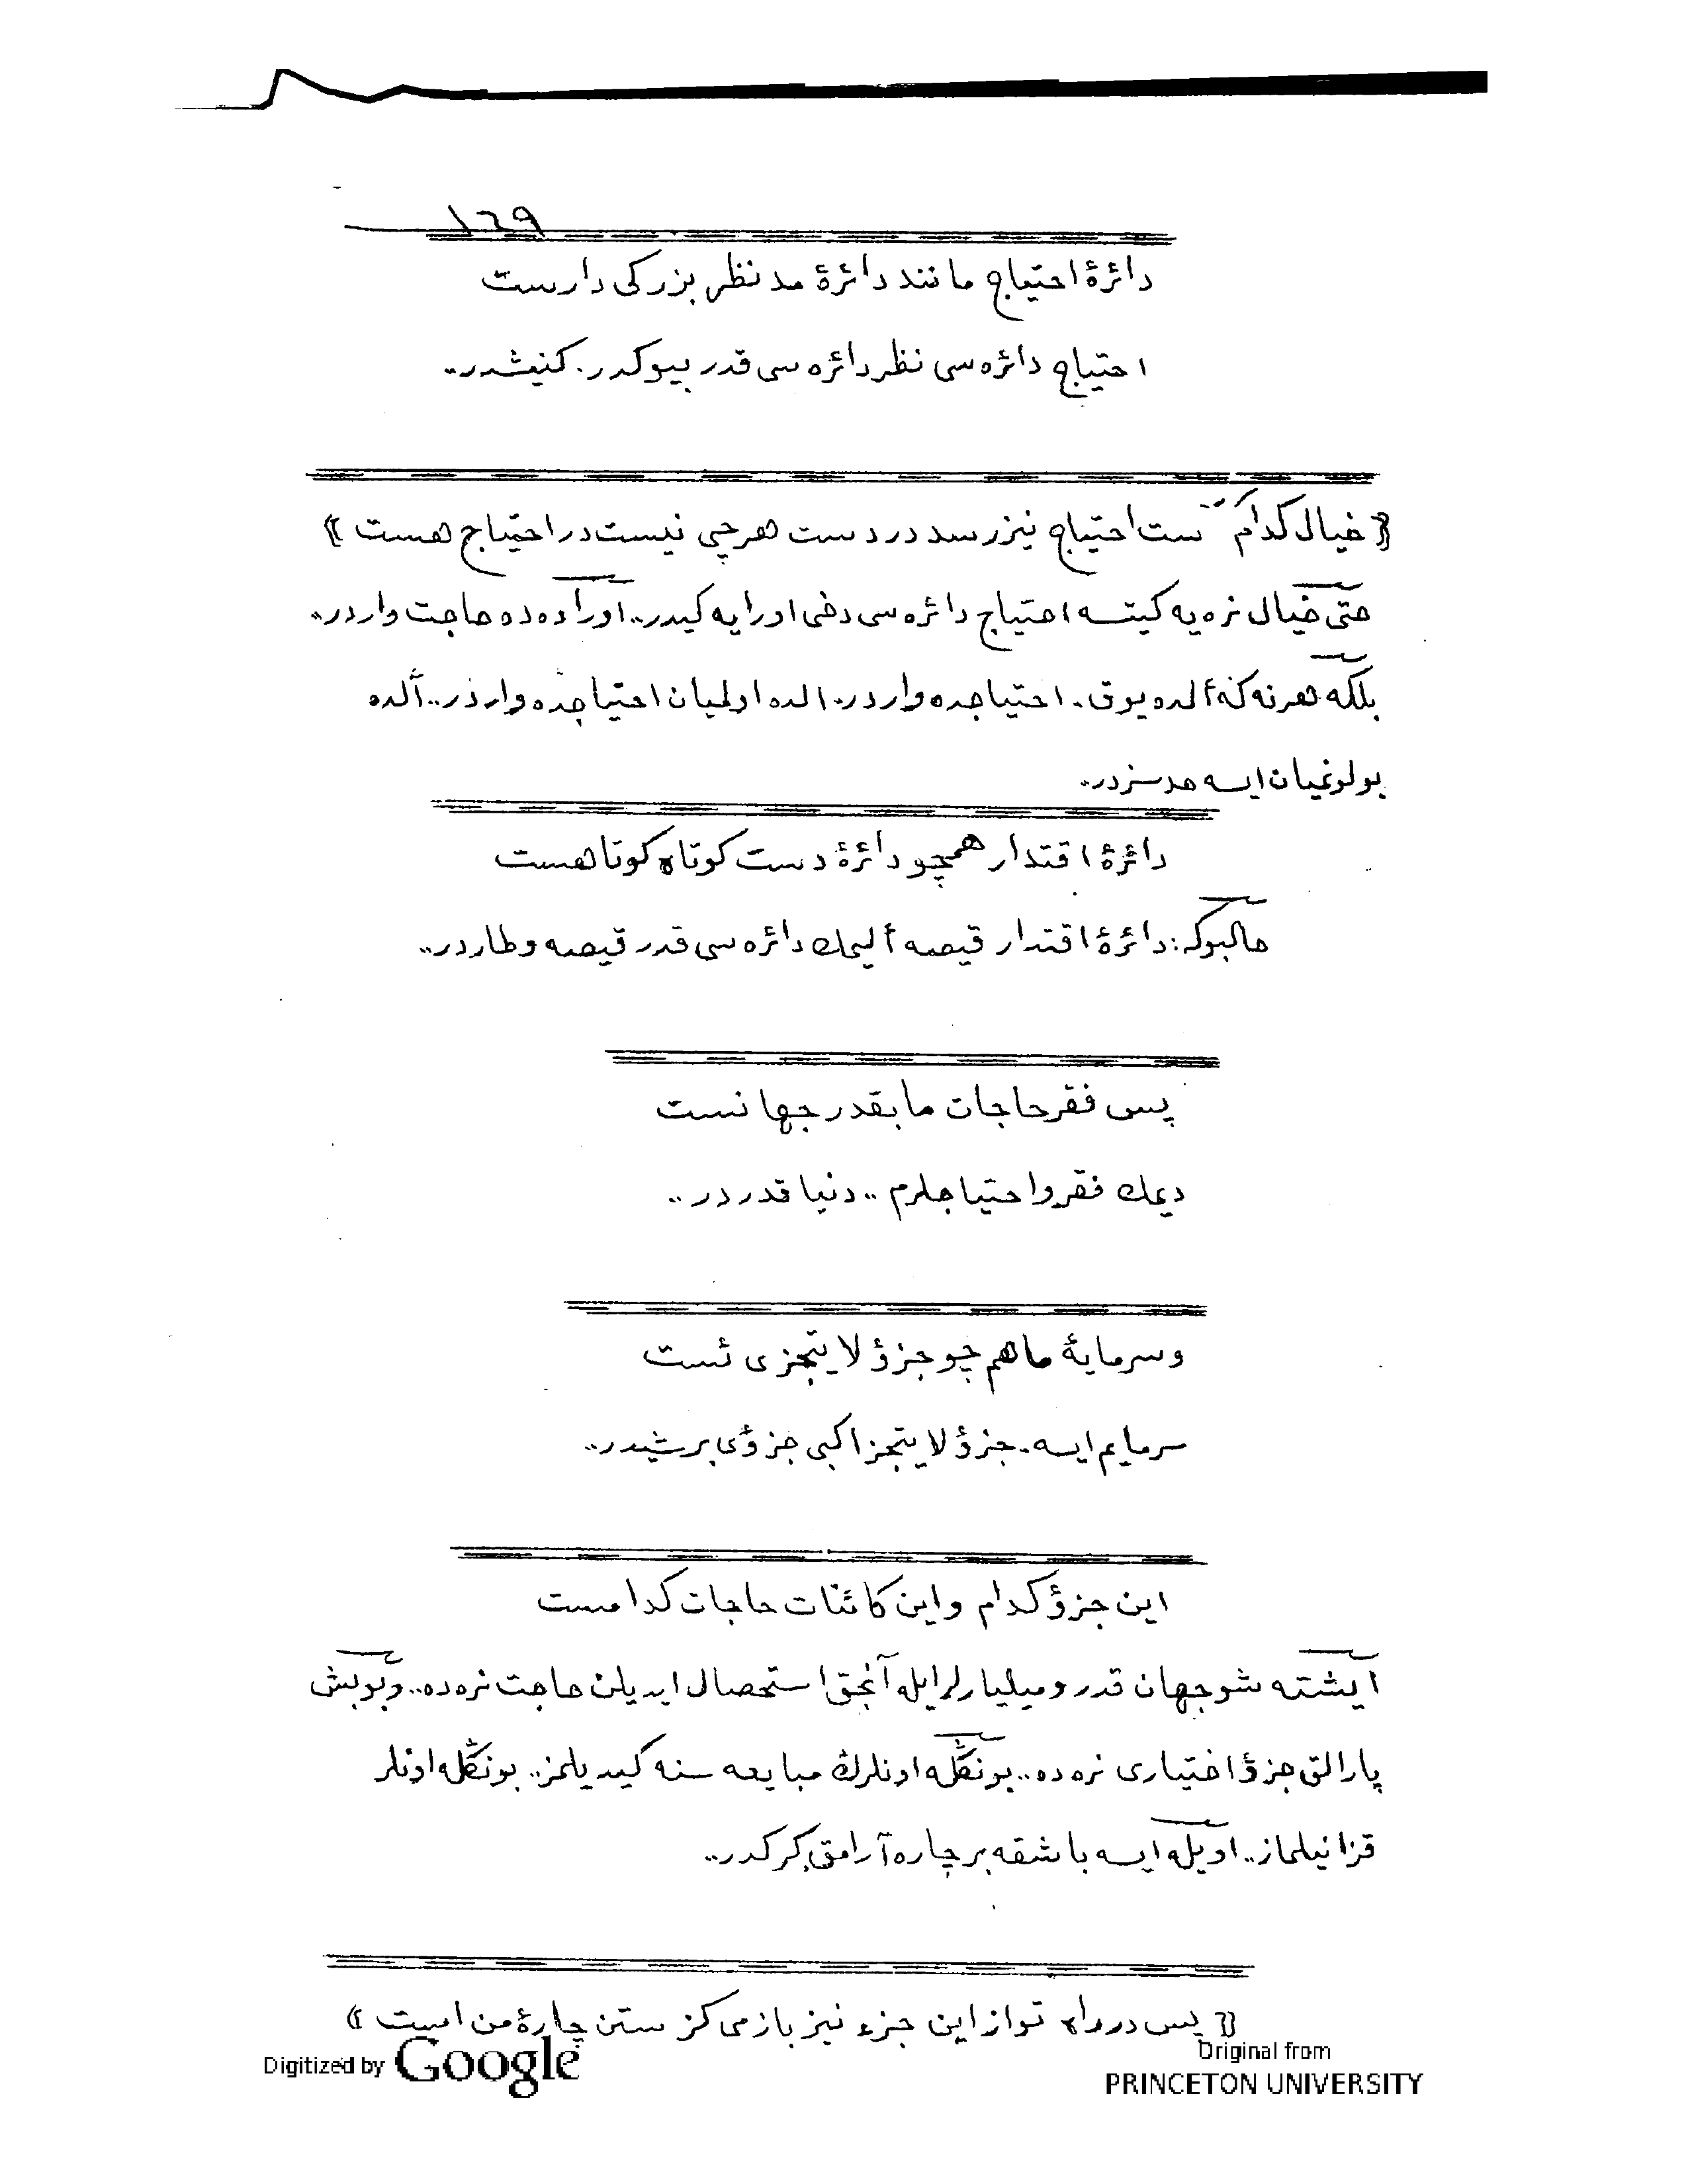 ١٦٩
دائرهٔ احتیاج مانند دائرهٔ مد نظر بزرکی دارست
احتیاج دائره سی نظر دائره سی قدر بیوکدر. کنیشدر..
﴿ خیال کدام ست احتیاج نیز رسد در دست هرچی نیست در احتیاج هست ﴾
حتی خیال نره یه کیتسه احتیاج دائره سی دخی اورایه کیدر.. اوراده ده حاجت واردر..
بلکه هرنه که ألده یوق. احتیاجده واردر. الده اولمیان احتیاجده واردر.. ألده
بولونمیان ایسه حدسزدر.
دائرهٔ اقتدار همچو دائرهٔ دست کوتاه کوتاهست
حالبوکه: دائرهٔ اقتدار قیصه ألیمك دائره سی قدر قیصه وطاردر..
پس فقر حاجات ما بقدر جهانست
دیمك فقر واحتیاجلرم.. دنیا قدردر..
وسرمایهٔ ما هم چو جزؤ لا یتجزی ئست
سرمایم ایسه. جزؤ لا یتجزا کبی جزؤی بر شیدر..
این جزؤ کدام واین کائنات حاجات کدامست
ایشته شو جهان قدر ومیلیارلر ایله آنجق استحصال ایدیلن حاجت نره ده.. وبو بش
پارالق جزؤ اختیاری نره ده.. بونكله اونلرڭ مبایعه سنه کیدیلمز.. بونكله اونلر
قزانیلماز.. اویله ایسه باشقه بر چاره آرامق کرکدر..
﴿ پس در راه تو از این جزء نیز باز می کزستن چارهٔ من است ﴾
Digitized by Google
Original from
PRINCETON UNIVERSITY